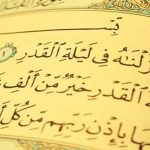 بِسْـ
زَلْنَٰهُ فِى لَيْلَةِ ٱلْقَدْرِ ١
ٱلْقَدْرِ خَيْرٌ مِّنْ أَلْفِ
هَا بِإِذْنِ رَبِّهِم مِّن كُلِّ